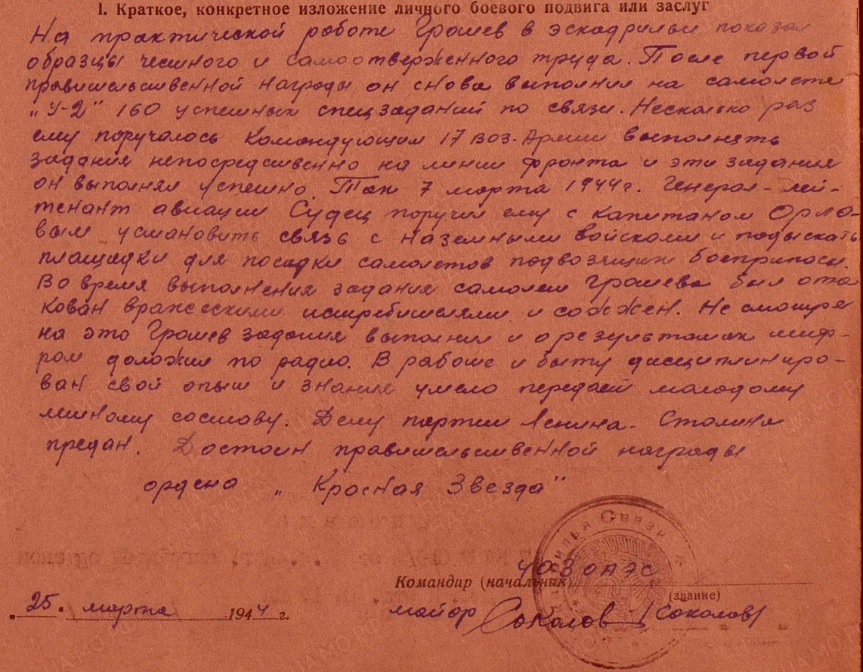 I. Краткое, конкретное изложение личного боевого подвига или заслуг
На практической работе Грошев в эскадрильи показал
образцы честного и самоотверженного труда. После первой
правительственной награды он снова выполнил на самолете
„У-2" 160 успешных спецзаданий по связи. Несколько раз
ему поручалось Командующим 17 воз. Армии выполнять
задания непосредственно на линии фронта и эти задания
он выполнял успешно. Так 7 марта 1944 г. Генерал-лей-
тенант авиации Судец поручил ему с капитаном Орло-
вым установить связь с наземными войсками и подыскать
площадки для посадки самолетов подвозящих боеприпасы.
Во время выполнения задания самолет Грошева был ата
кован вражескими истребителями и сожжен. Не смотря
на это Грошев задания выполнил и о результатах шиф-
ром доложил по радио. В работе и быту дисциплиниро-
ван свой опыт и знания умело передает молодому
летному составу. Делу партии Ленина - Сталина
предан. Достоин правительственной награды
ордена „Красная Звезда"
Командир (начальник) 403 ОАЭС
(звание)
„25" марта 1944 г. майор Соколов /Соколов/